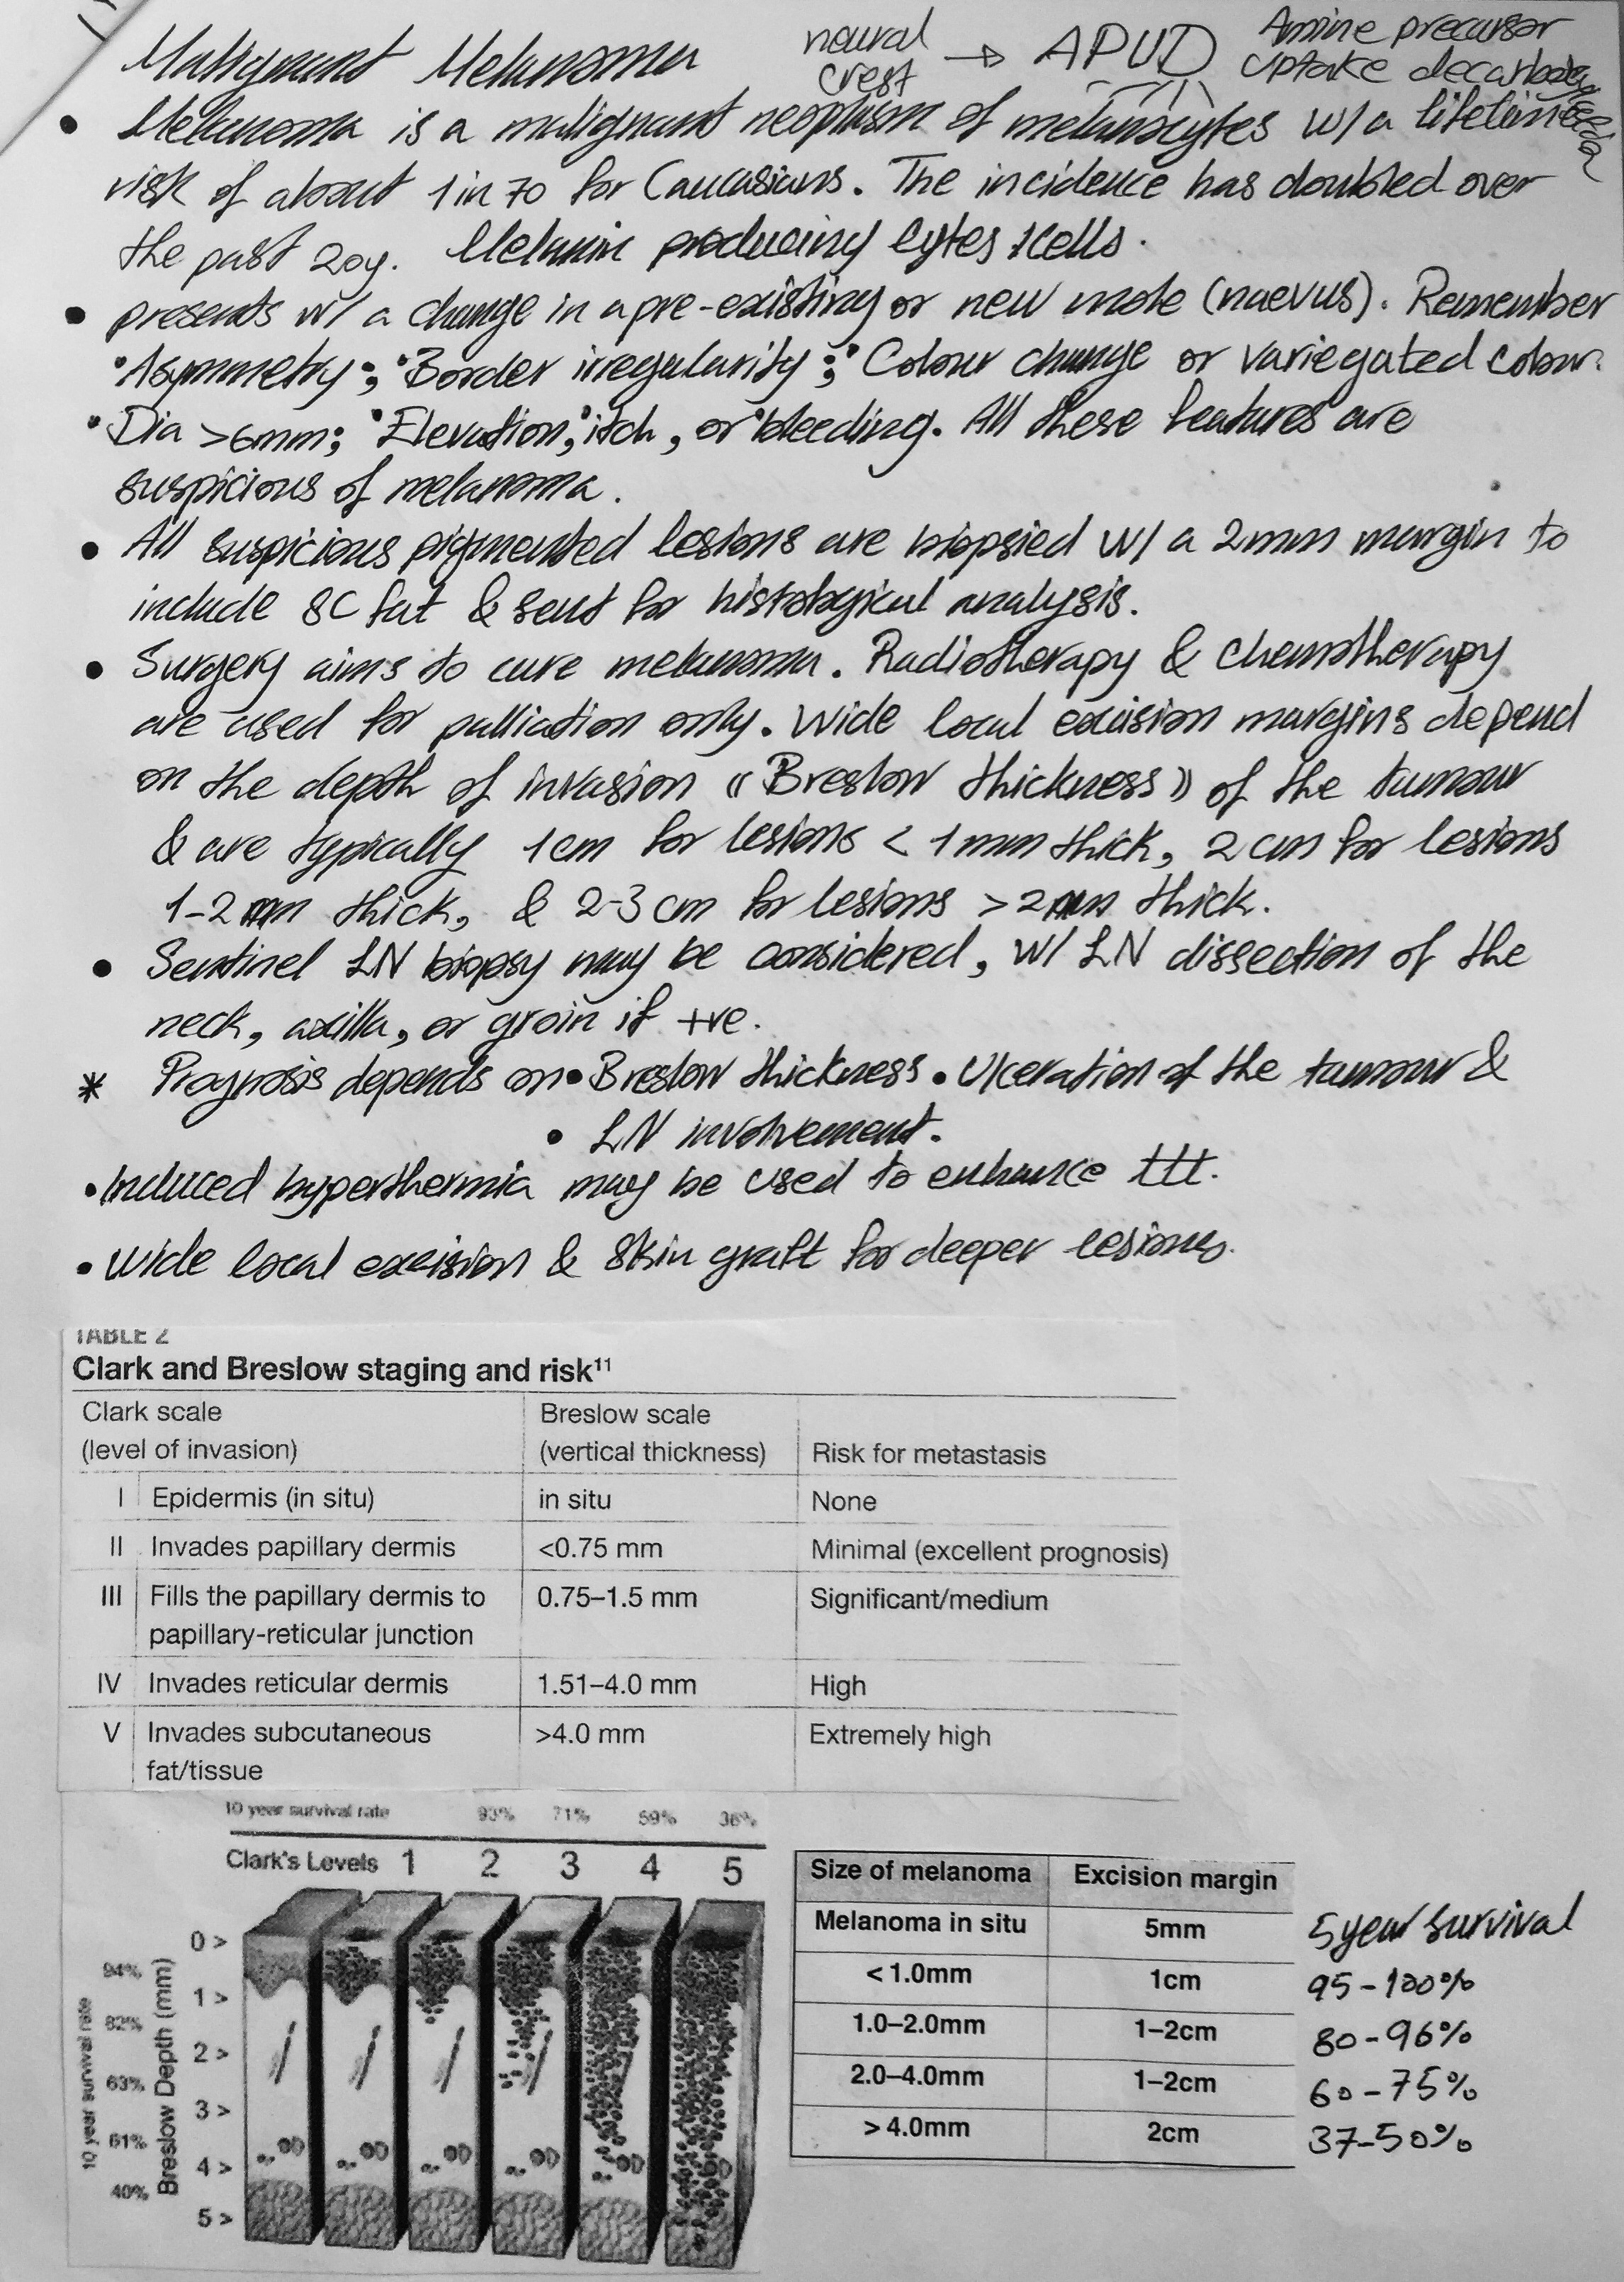 Malignant Melanoma neural crest → APUD Amine precursor uptake decarboxylase
• Melanoma is a malignant neoplasm of melanocytes w/ a lifetime
risk of about 1 in 70 for Caucasians. The incidence has doubled over
the past 20y. Melanin producing cytes cells.
• presents w/ a change in a pre-existing or new mole (naevus). Remember
•Asymmetry; •Border irregularity; •Colour change or variegated colour.
•Dia >6mm; •Elevation, •itch, or •bleeding. All these features are
suspicious of melanoma.
• All suspicious pigmented lesions are biopsied w/ a 2mm margin to
include SC fat & sent for histological analysis.
• Surgery aims to cure melanoma. Radiotherapy & chemotherapy
are used for palliation only. Wide local excision margins depend
on the depth of invasion « Breslow thickness » of the tumour
& are typically 1cm for lesions < 1mm thick, 2cm for lesions
1-2mm thick, & 2-3cm for lesions >2mm thick.
• Sentinel LN biopsy may be considered, w/ LN dissection of the
neck, axilla, or groin if +ve.
* Prognosis depends on • Breslow thickness • Ulceration of the tumour &
• LN involvement.
• Induced hyperthermia may be used to enhance ttt.
• Wide local excision & skin graft for deeper lesions.
TABLE 2
Clark and Breslow staging and risk¹¹
Clark scale Breslow scale
(level of invasion) (vertical thickness) Risk for metastasis
I Epidermis (in situ) in situ None
II Invades papillary dermis <0.75 mm Minimal (excellent prognosis)
III Fills the papillary dermis to 0.75–1.5 mm Significant/medium
papillary-reticular junction
IV Invades reticular dermis 1.51–4.0 mm High
V Invades subcutaneous >4.0 mm Extremely high
fat/tissue
10 year survival rate 93% 71% 59% 36%
Clark's Levels 1 2 3 4 5
10 year survival rate
94%
82%
63%
61%
40%
Breslow Depth (mm)
0 >
1 >
2 >
3 >
4 >
5 >
Size of melanoma Excision margin
Melanoma in situ 5mm 5 year survival
<1.0mm 1cm 95-100%
1.0–2.0mm 1–2cm 80-96%
2.0–4.0mm 1–2cm 60-75%
>4.0mm 2cm 37-50%